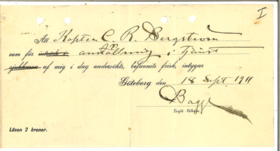 I
Att Kapten C. R. Bergström
som för anställning i tjänst
af mig i dag undersökts, befunnits frisk, intygar
Göteborg den 18 Sept. 1911
Lösen 2 kronor.